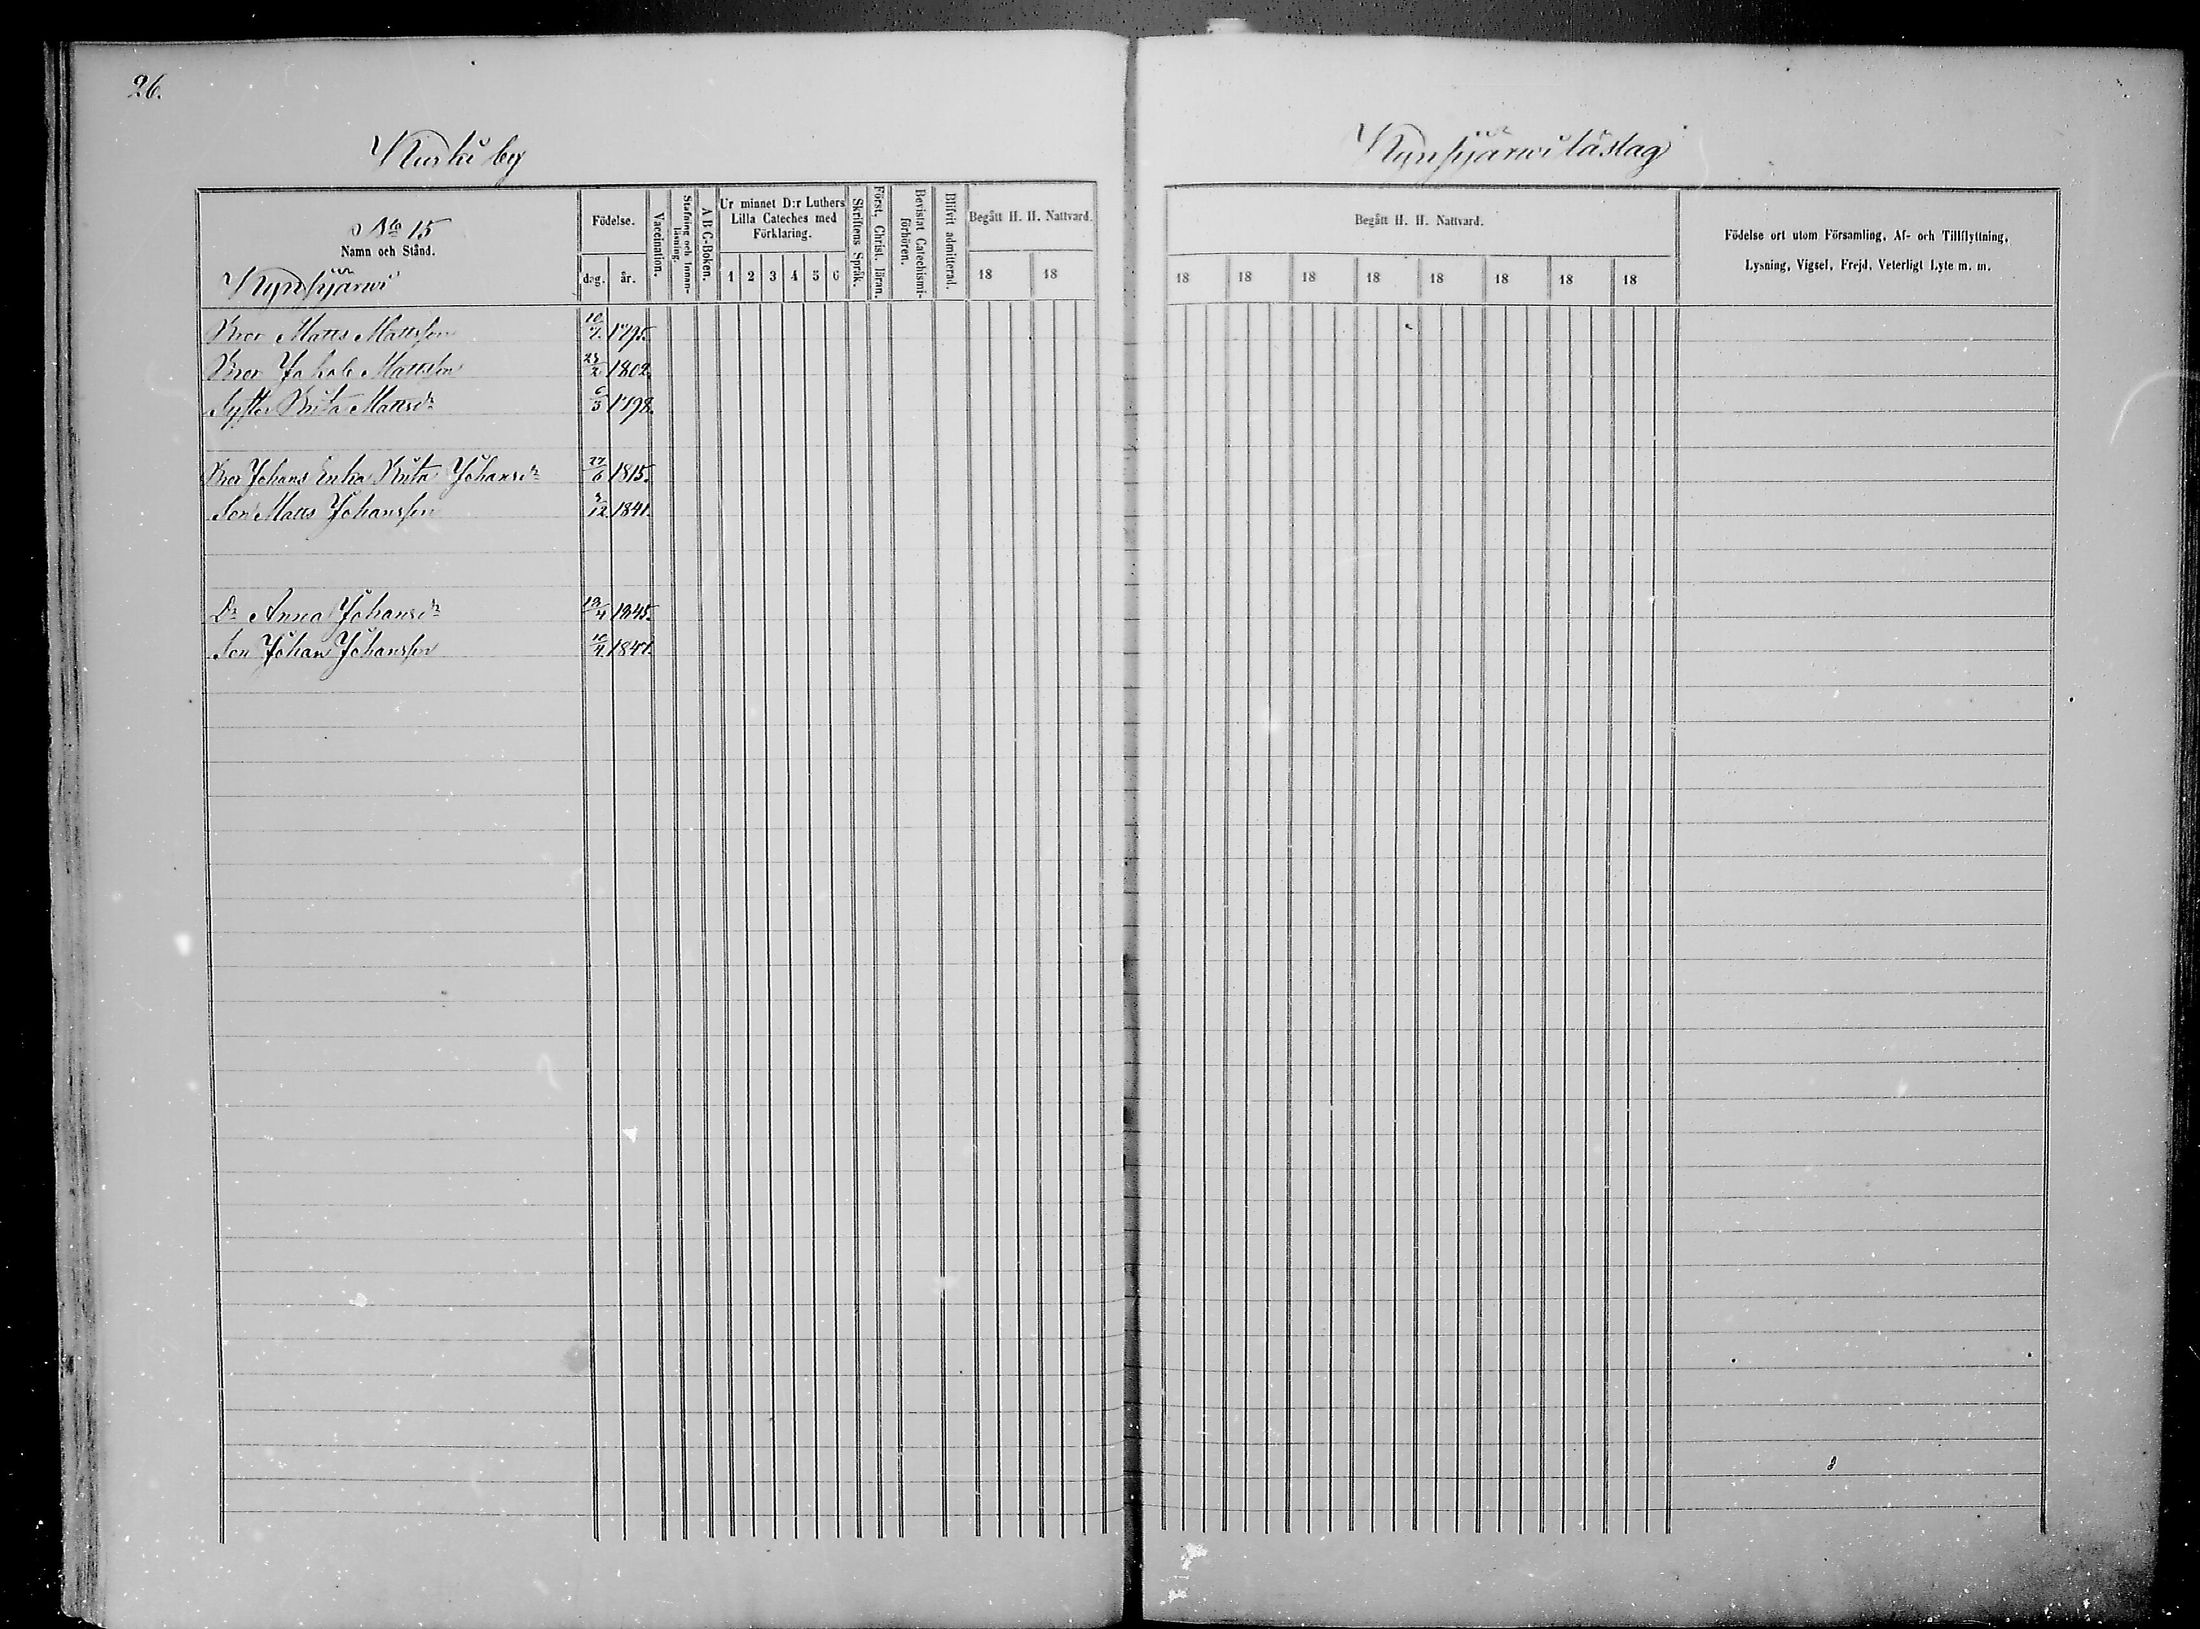 26.
Kurki by
No 15
Namn och Stånd.
Födelse.
dag.
år.
Vaccination.
Stafning och Innanläsning.
A B C-Boken.
Ur minnet D:r Luthers Lilla Cateches med Förklaring.
1 2 3 4 5 6
Skriftens Språk.
Först. Christ. läran.
Bevistat Catechismiförhören.
Blifvit admitterad.
Begått H. H. Nattvard.
18 18
Bror Matts Mattsson 10/7. 1795.
Bror Jakob Mattsson 1802.
Syster Brita Mattsdr 6/3 1798.
Bror Johans Enka Brita Johansdr 27/6 1815.
Son Matts Johansson 12. 1841.
Dr Anna Johansdr 13/4 1845.
Son Johan Johansson 10/4. 1847.
läslag
Begått H. H. Nattvard.
18 18 18 18 18 18 18 18
Födelse ort utom Församling, Af- och Tillflyttning,
Lysning, Vigsel, Frejd, Veterligt Lyte m. m.